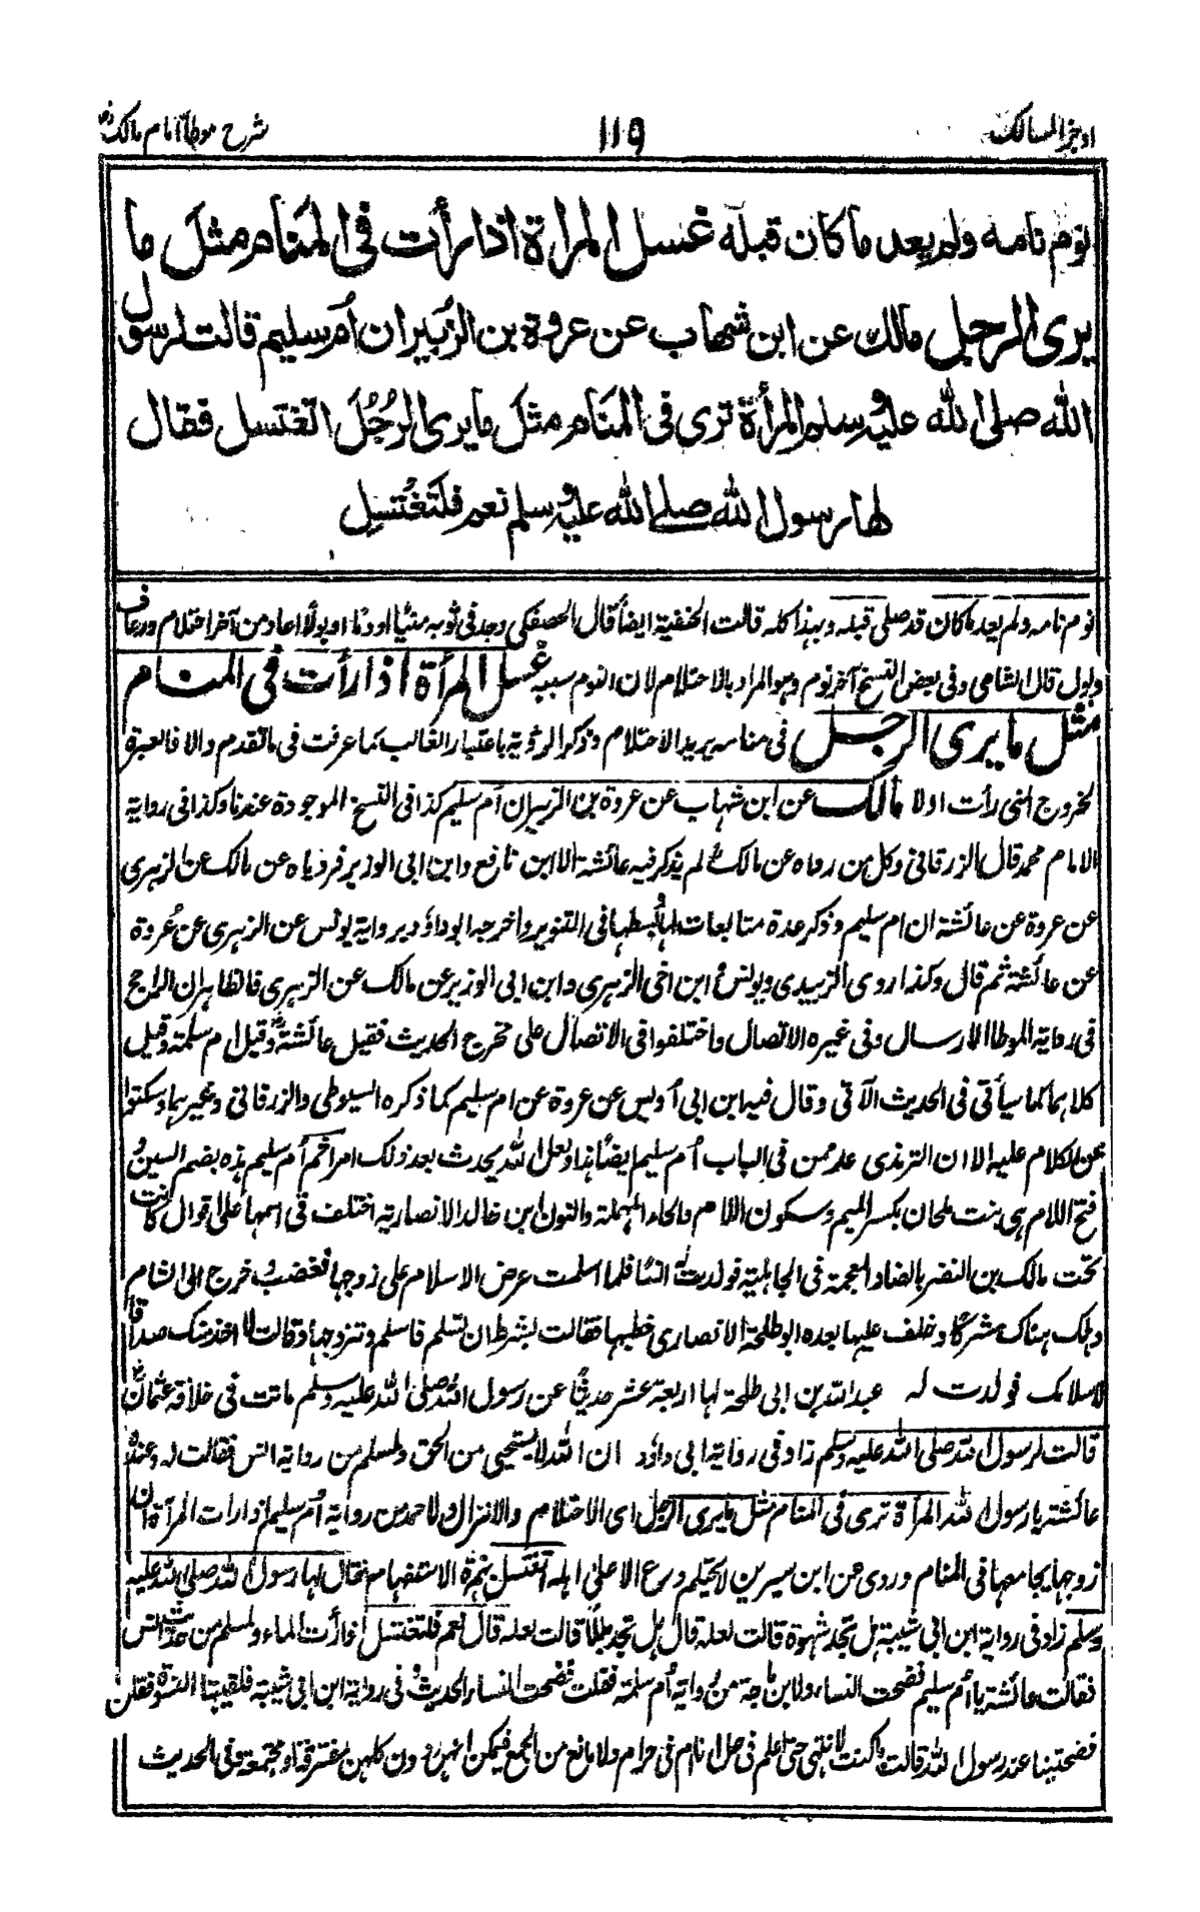 اوجز المسالك
١١٩
شرح موطا امام مالك رض
نوم نامه ولم يعد ما كان قبله غسل المرأة اذا رأت فى المنام مثل ما
يرى الرجل مالك عن ابن شهاب عن عروة بن الزُبير ان اُم سليم قالت لرسول
الله صلى الله عليه وسلم المرأة ترى فى المنام مثل ما يرى الرجُلُ اتغتسل فقال
لها رسول الله صلى الله عليه وسلم نعم فلتَغْتسِل
نوم نامه ولم يعد ما كان قد صلى قبله وبهذا كله قالت الحنفية ايضاً قال الحصفكى وجد فى ثوبه منيًا او دمًا او بولًا اعاد من آخر احتلام ورعاف
وبول قال الشامى وفى بعض النسخ آخر نوم وهو المراد بالاحتلام لان النوم سببه غسل المرأة اذا رأت فى المنام
مثل ما يرى الرجل فى منامه يريد الاحتلام وذكر الرؤية باعتبار الغالب كما عرفت فى ما تقدم والا فالعبرة
لخروج المنى رأت اولا مالك عن ابن شهاب عن عروة بن الزبير ان اُم سليم كذا فى النسخ الموجودة عندنا وكذا فى رواية
الامام محمد قال الزرقانى وكل من رواه عن مالك لم يذكر فيه عائشة الا ابن نافع وابن ابى الوزير فروياه عن مالك عن الزهرى
عن عروة عن عائشة ان ام سليم وذكر عدة متابعات لها بسطها فى التنوير واخرجه ابو داؤد برواية يونس عن الزهرى عن عُروة
عن عائشة ثم قال وكذا روى الزبيدى ويونس و ابن اخى الزهرى وابن ابى الوزير عن مالك عن الزهرى فالظاهر ان المرجح
فى رواية الموطا الارسال وفى غيره الاتصال واختلفوا فى الاتصال على مخرج الحديث فقيل عائشة وقيل ام سلمة وقيل
كلاهما كما سيأتى فى الحديث الآتى وقال فيه ابن ابى اُويس عن عروة عن ام سليم كما ذكره السيوطى والزرقانى وغيرهما وسكتوا
عن الكلام عليه الا ان الترمذى عد ممن فى الباب اُم سليم ايضًا هذا ولعل الله يحدث بعد ذلك امرا ثم اُم سليم هذه بضم السين و
فتح اللام هى بنت ملحان بكسر الميم وسكون اللام والحاء المهملة والنون ابن خالد الانصارية اختلف فى اسمها على اقوال كانت
تحت مالك بن النضر بالضاد المعجمة فى الجاهلية فولدت له انسا فلما اسلمت عرض الاسلام على زوجها فغضب و خرج الى الشام
وهلك هناك مشركًا وخلف عليها بعده ابو طلحة الانصارى خطبها فقالت بشرط ان تسلم فاسلم وتزوجها وقالت لا اخذ منك صداقًا
لاسلامك فولدت له عبد الله بن ابى طلحة لها اربعة عشر حديثًا عن رسول الله صلى الله عليه وسلم ماتت فى خلافة عثمان رض
قالت لرسول الله صلى الله عليه وسلم زاد فى رواية ابى داؤد ان الله لا يستحيى من الحق ولمسلم من رواية انس فقالت له وعنده
عائشة يا رسول الله المرأة ترى فى المنام مثل ما يرى الرجل اى الاحتلام والانزال ولاحمد من رواية اُم سليم اذا رأت المرأة ان
زوجها يجامعها فى المنام وروى عن ابن سيرين لا يحتلم ورع الا على اهله اتغتسل بهمزة الاستفهام فقال لها رسول الله صلى الله عليه
وسلم زاد فى رواية ابن ابى شيبة هل تجد شهوة قالت لعله قال هل تجد بللًا قالت لعله قال نعم فلتغتسل اذا رأت الماء ولمسلم من حديث انس
فقالت عائشة يا اُم سليم فضحت النساء ولابن ماجة من رواية اُم سلمة فقلت فضحت النساء الحديث و فى رواية ابن ابى شيبة فلقيتها النسوة فقلن
فضحتينا عند رسول الله قالت ما كنت لا نتهى حتى اعلم فى حل انا ام فى حرام ولا مانع من الجمع فيمكن انهن كلهن مفترقة او مجتمعة وفى الحديث